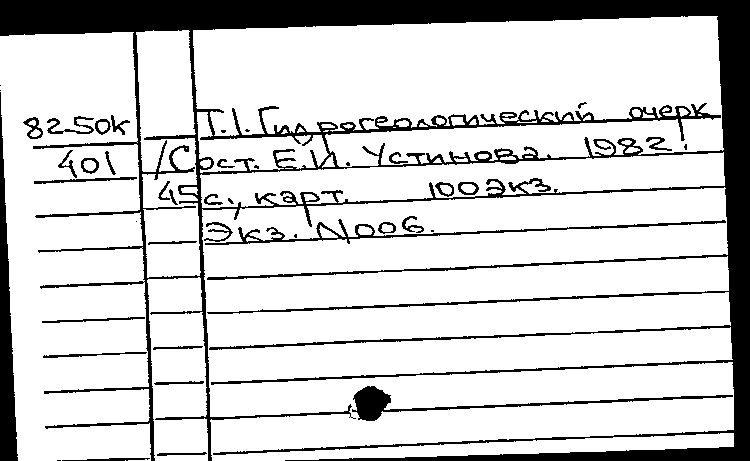 82-50к Т.1. Гидрогеологический очерк
401 /Сост. Е.И. Устинова. 1982!
45с., карт. 100экз.
Экз. N006.